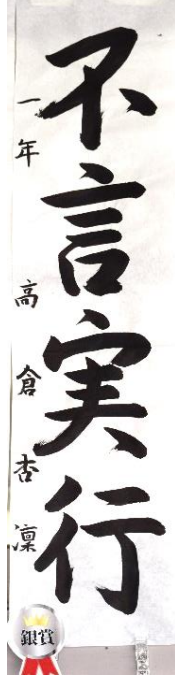 不言実行
一年 高倉杏凜
銀賞